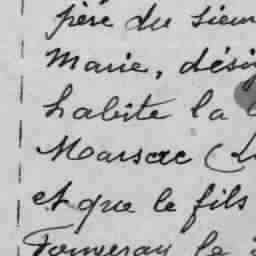 père du sieur
Marie, désig
habite la
Marsac (L
et que le fils
Fouveray le